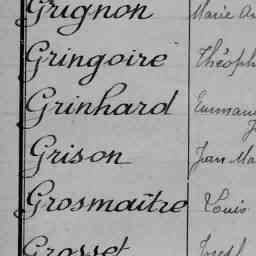 Grignon Marie
Gringoire Théoph
Grinhard Emman
Grison Jean Ma
Grosmaître Louis
Grosset Joseph